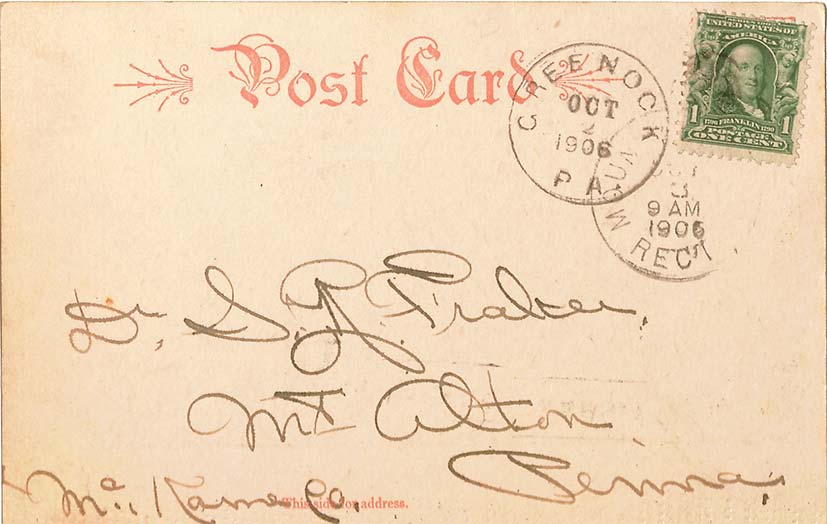 Post Card
SERIES 1902
UNITED STATES OF
AMERICA
1 1706 FRANKLIN 1790 1
POSTAGE
ONE CENT
GREENOCK
OCT
2
1906
PA
3
9 AM
1906
REC'
Dr. S. Y. Fraker,
Mt Alton
Mc. Kane Co. Penna,
This side for address.